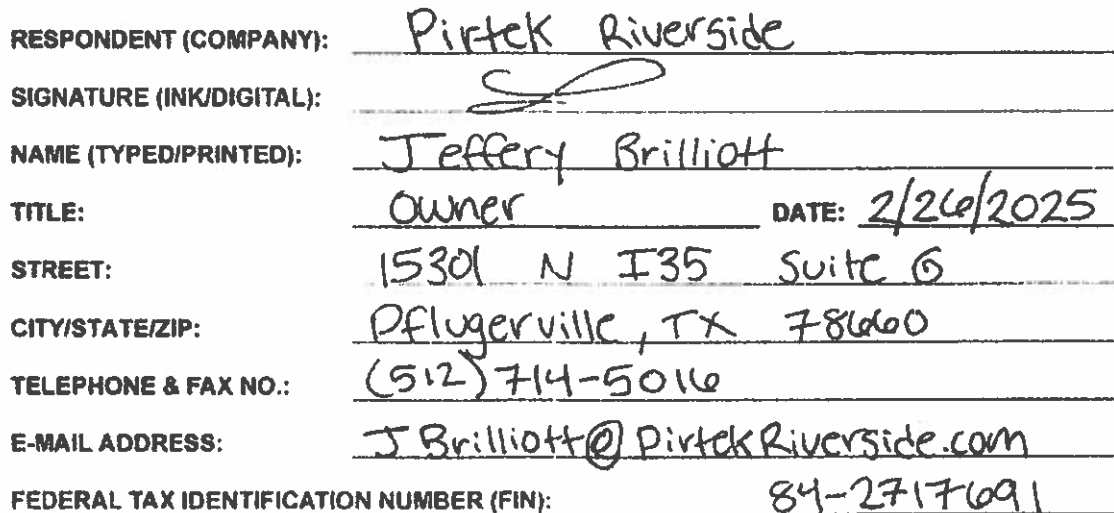 RESPONDENT (COMPANY): Pirtek Riverside
SIGNATURE (INK/DIGITAL):
NAME (TYPED/PRINTED): Jeffery Brilliott
TITLE: Owner DATE: 2/26/2025
STREET: 15301 N I35 Suite G
CITY/STATE/ZIP: Pflugerville, TX 78660
TELEPHONE & FAX NO.: (512) 714-5016
E-MAIL ADDRESS: JBrilliott@PirtekRiverside.com
FEDERAL TAX IDENTIFICATION NUMBER (FIN): 84-2717691